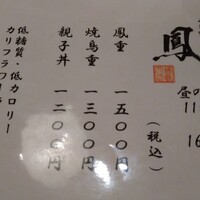 鳳
昼の
11
16
(税込)
鳳重 一五〇〇円
焼鳥重 一三〇〇円
親子丼 一二〇〇円
低糖質・低カロリー
カリフラワー